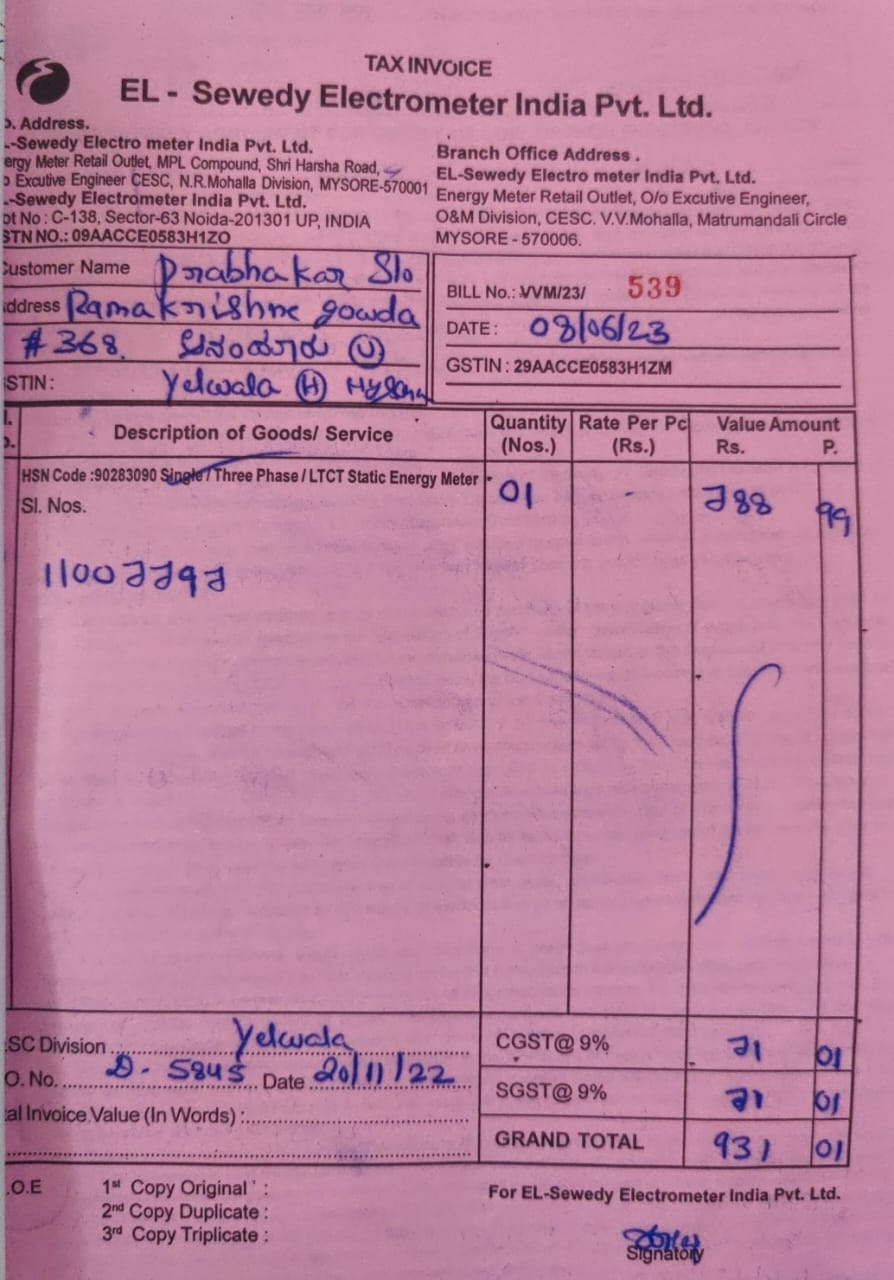 TAX INVOICE
EL - Sewedy Electrometer India Pvt. Ltd.
o. Address.
.-Sewedy Electro meter India Pvt. Ltd.
ergy Meter Retail Outlet, MPL Compound, Shri Harsha Road,
o Excutive Engineer CESC, N.R.Mohalla Division, MYSORE-570001
.-Sewedy Electrometer India Pvt. Ltd.
ot No : C-138, Sector-63 Noida-201301 UP, INDIA
STN NO.: 09AACCE0583H1ZO
Branch Office Address .
EL-Sewedy Electro meter India Pvt. Ltd.
Energy Meter Retail Outlet, O/o Excutive Engineer,
O&M Division, CESC. V.V.Mohalla, Matrumandali Circle
MYSORE - 570006.
Customer Name Prabhakar S/o
ddress Ramakrishne gowda
#368. (V)
STIN : Yelwala (H)
BILL No.: VVM/23/ 539
DATE : 08/06/23
GSTIN : 29AACCE0583H1ZM
Description of Goods/ Service Quantity (Nos.) Rate Per Pc (Rs.) Value Amount Rs. P.
HSN Code :90283090 Single / Three Phase / LTCT Static Energy Meter 01 - 788 99
Sl. Nos.
11007797
SC Division Yelwala CGST@ 9% 71 01
O. No. D - 5845 Date 20/11/22 SGST@ 9% 71 01
al Invoice Value (In Words) :
GRAND TOTAL 931 01
.O.E 1st Copy Original :
2nd Copy Duplicate :
3rd Copy Triplicate :
For EL-Sewedy Electrometer India Pvt. Ltd.
Signatory